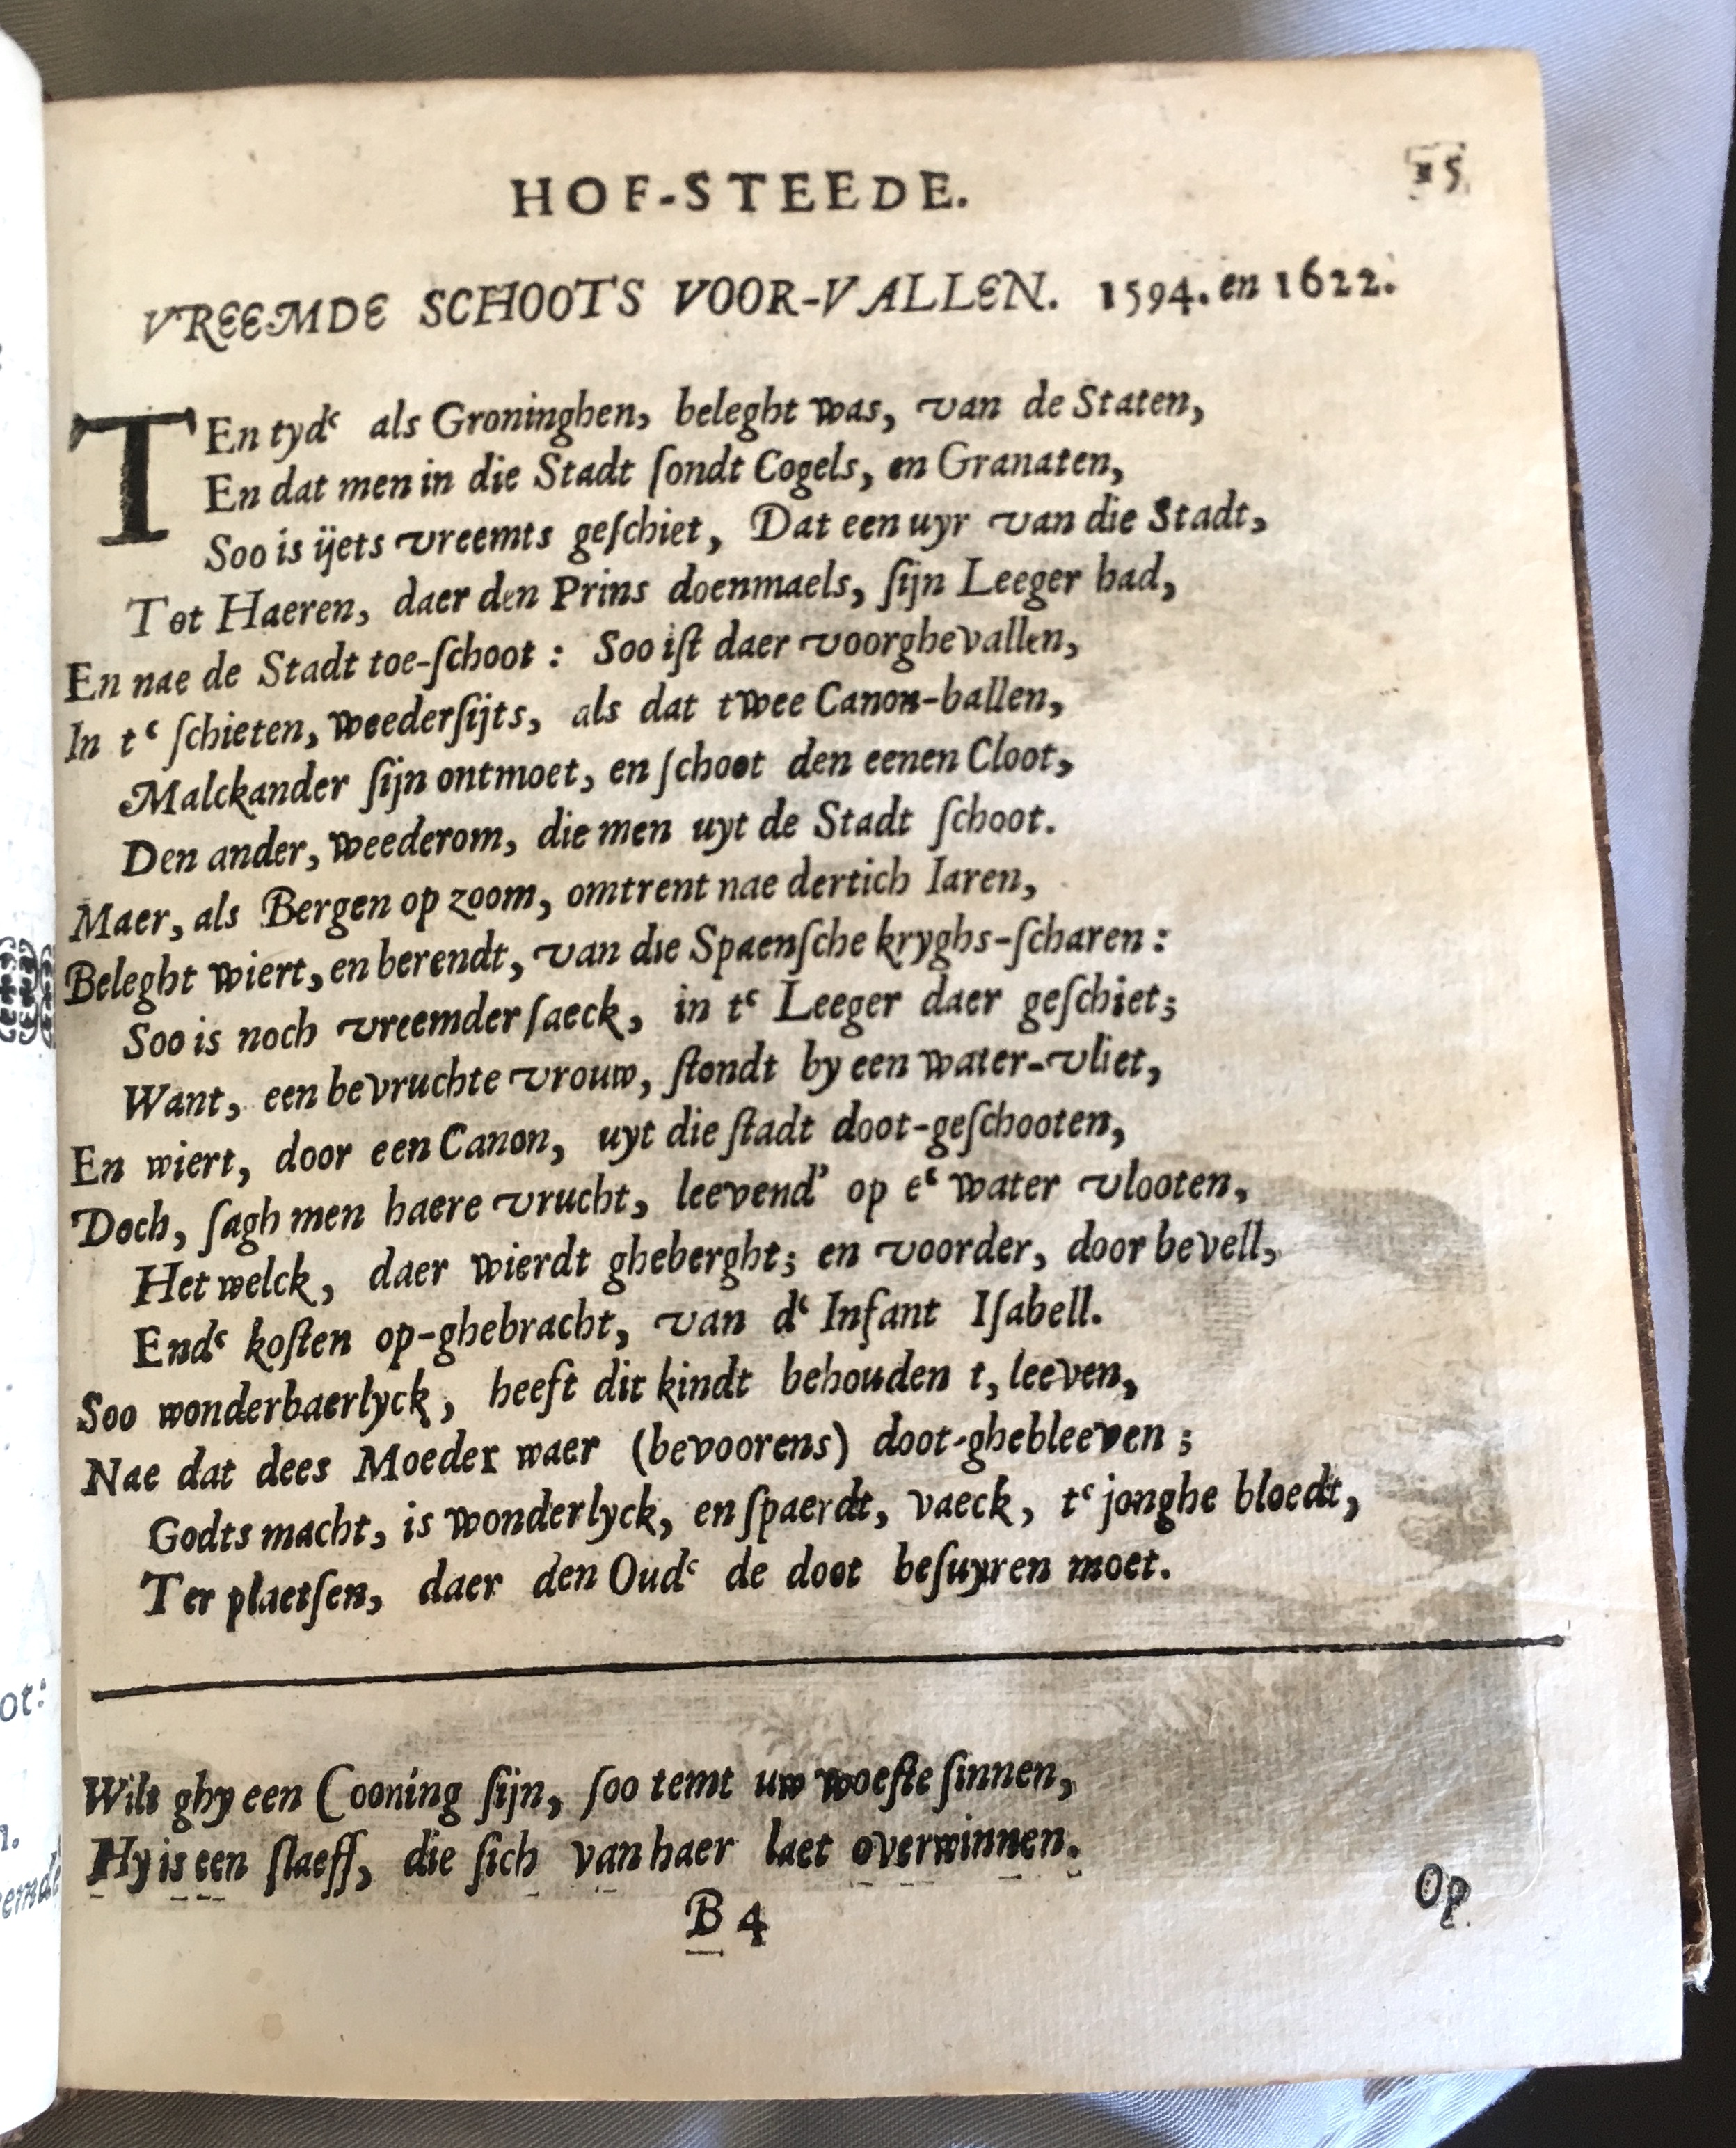 HOF-STEEDE. 15
VREEMDE SCHOOTS VOOR-VALLEN. 1594. en 1622.
TEn tydᵉ als Groninghen, beleght was, van de Staten,
En dat men in die Stadt ſondt Cogels, en Granaten,
Soo is ijets vreemts geſchiet, Dat een uyr van die Stadt,
Tot Haeren, daer den Prins doenmaels, ſijn Leeger had,
En nae de Stadt toe-ſchoot : Soo iſt daer voorghevallen,
In tᵉ ſchieten, weederſijts, als dat twee Canon-ballen,
Malckander ſijn ontmoet, en ſchoot den eenen Cloot,
Den ander, weederom, die men uyt de Stadt ſchoot.
Maer, als Bergen op zoom, omtrent nae dertich Iaren,
Beleght wiert, en berendt, van die Spaenſche kryghs-ſcharen :
Soo is noch vreemder ſaeck, in tᵉ Leeger daer geſchiet;
Want, een bevruchte vrouw, ſtondt by een water-vliet,
En wiert, door een Canon, uyt die ſtadt doot-geſchooten,
Doch, ſagh men haere vrucht, leevend' op eᵗ water vlooten,
Het welck, daer wierdt gheberght; en voorder, door bevell,
Endᵉ koſten op-ghebracht, van dᵉ Infant Iſabell.
Soo wonderbaerlyck, heeft dit kindt behouden t, leeven,
Nae dat dees Moeder waer (bevoorens) doot-ghebleeven ;
Godts macht, is wonderlyck, en ſpaerdt, vaeck, tᵉ jonghe bloedt,
Ter plaetſen, daer den Oudᵉ de doot beſuyren moet.
Wilt ghy een Cooning ſijn, ſoo temt uw woeſte ſinnen,
Hy is een ſlaeff, die ſich van haer laet overwinnen.
B 4
Op
ot: